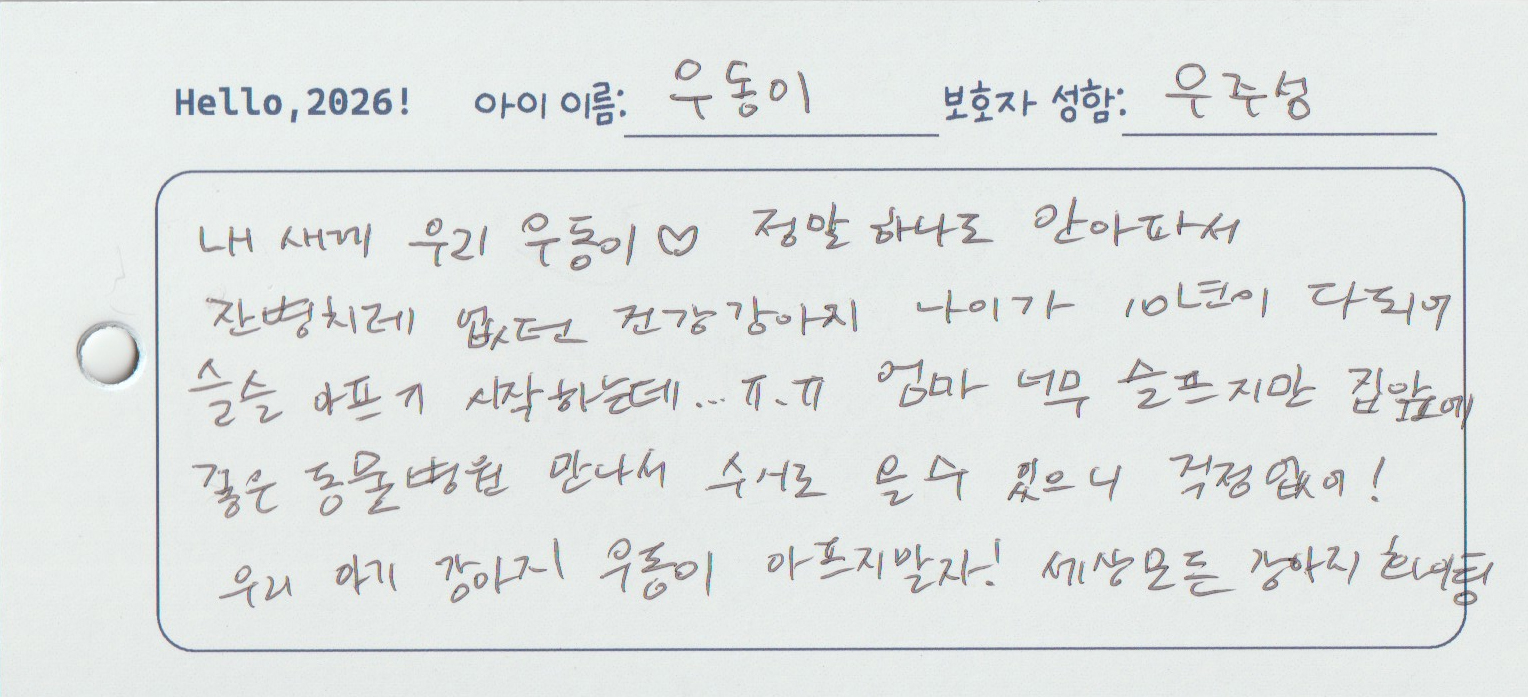 Hello,2026! 아이 이름: 우동이 보호자 성함: 우주성
내 새끼 우리 우동이♡ 정말 하나도 안아파서
잔병치레 없던 건강강아지 나이가 10년이 다되어
슬슬 아프기 시작하는데...ㅠ.ㅠ 엄마 너무 슬프지만 집앞에
좋은 동물병원 만나서 수시로 올 수 있으니 걱정없어!
우리 아기 강아지 우동이 아프지말자! 세상모든 강아지 화이팅